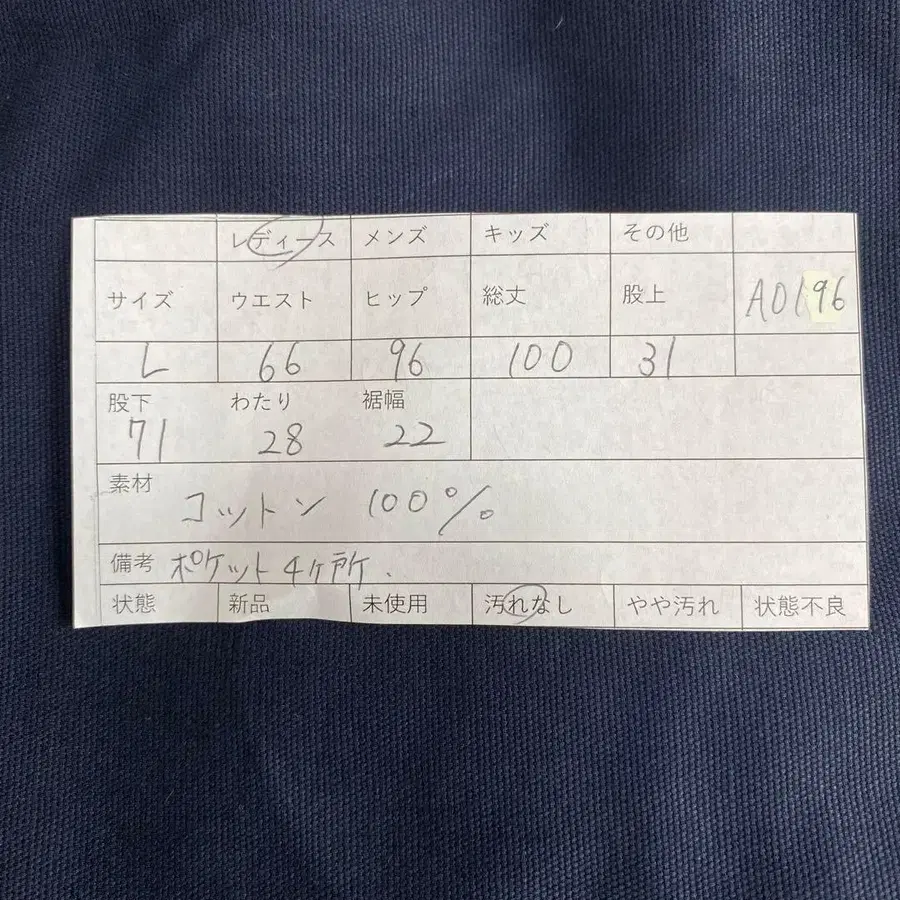 レディース メンズ キッズ その他
サイズ ウエスト ヒップ 総丈 股上 A0196
L 66 96 100 31
股下 わたり 裾幅
71 28 22
素材
コットン 100%
備考 ポケット4ヶ所.
状態 新品 未使用 汚れなし やや汚れ 状態不良